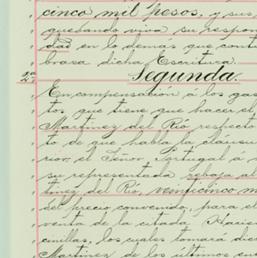 cinco mil pesos, y sus
quedando viva su respon
dad en lo demas que conti
brasa dicha Escritura.
Segunda.
En compensación á los gas
tos que tiene que hacer el
Martinez del Río respecto
to de que habla la clausu
rior, el Señor Portugal a
su representada rebaja al
tinez del Río, veinticinco m
del precio convenido, para el
venta de la citada Hacien
cuillas, los cuales tomará di
Martinez de los últimos